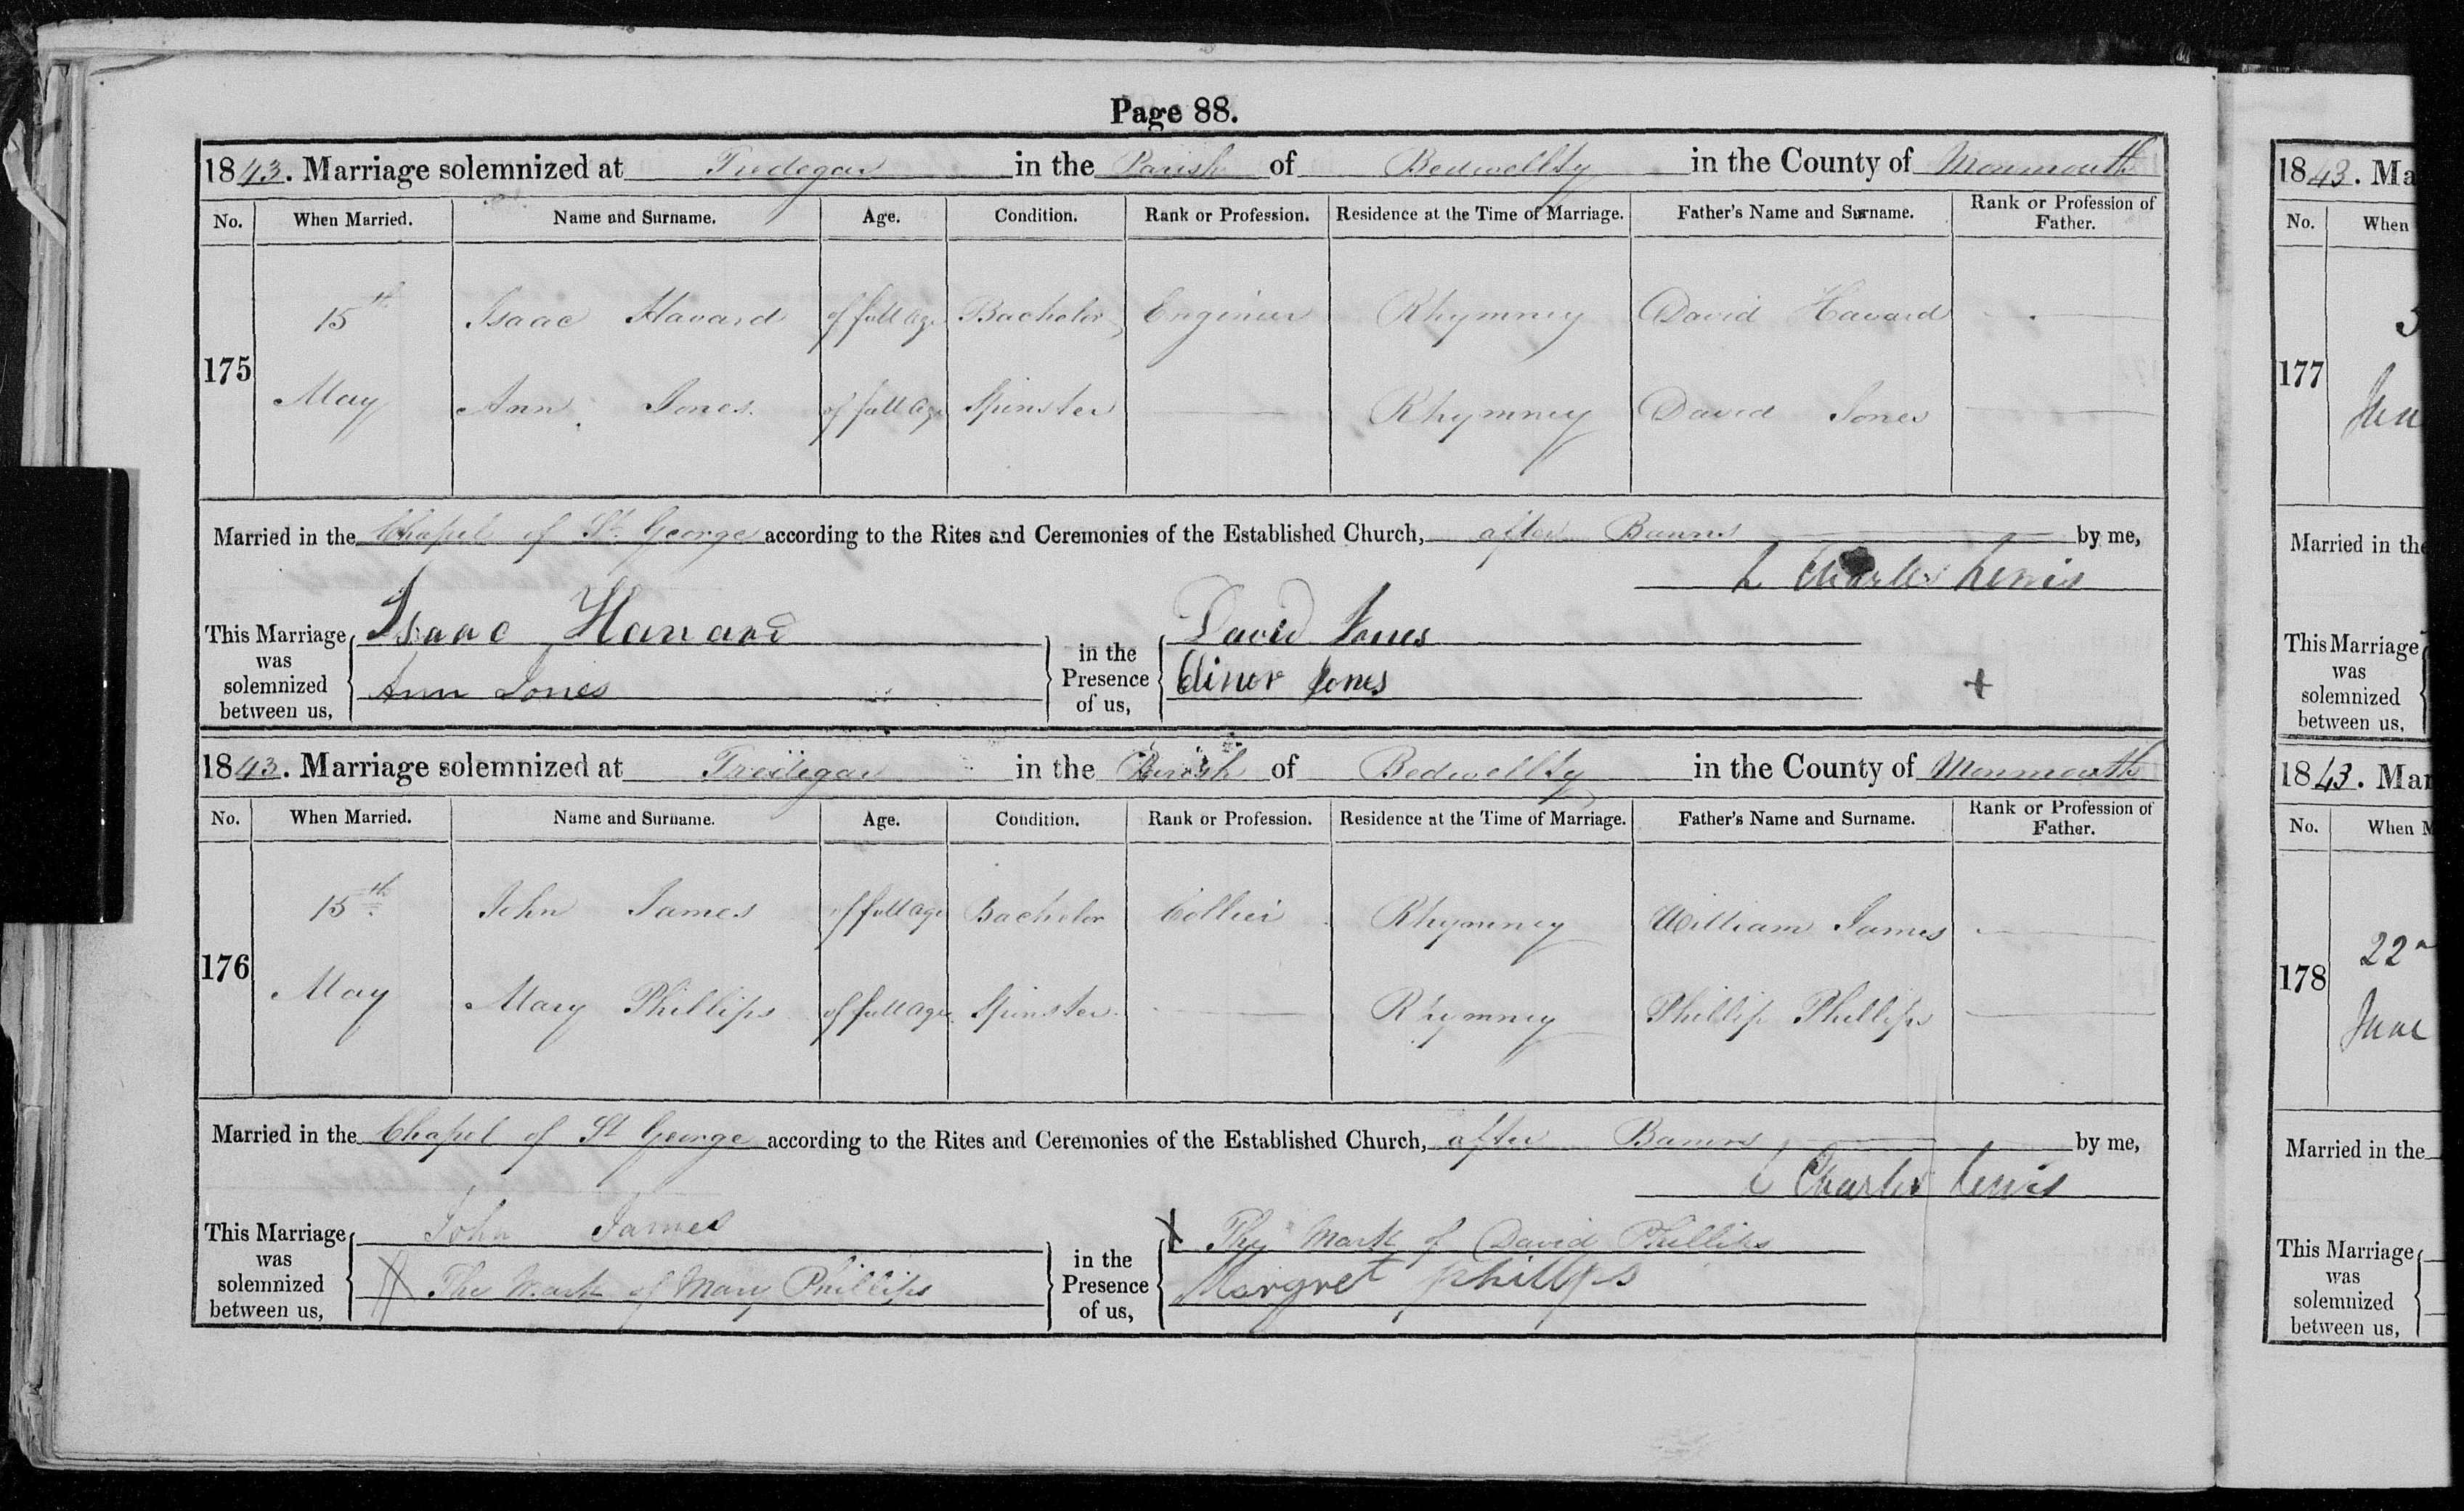 Page 88.
1843. Marriage solemnized at Tredegar in the Parish of Bedwellty in the County of Monmouth
No. When Married. Name and Surname. Age. Condition. Rank or Profession. Residence at the Time of Marriage. Father's Name and Surname. Rank or Profession of Father.
175 15th May
Isaac Havard of full age Bachelor Engineer Rhymney David Havard
Ann Jones of full age Spinster Rhymney David Jones
Married in the Chapel of St George according to the Rites and Ceremonies of the Established Church, after Banns by me,
L Charles Lewis
This Marriage was solemnized between us,
Isaac Havard
Ann Jones
in the Presence of us,
David Jones
Elinor Jones
+
1843. Marriage solemnized at Tredegar in the Parish of Bedwellty in the County of Monmouth
No. When Married. Name and Surname. Age. Condition. Rank or Profession. Residence at the Time of Marriage. Father's Name and Surname. Rank or Profession of Father.
176 15th May
John James of full age Bachelor Collier Rhymney William James
Mary Phillips of full age Spinster Rhymney Phillip Phillips
Married in the Chapel of St George according to the Rites and Ceremonies of the Established Church, after Banns by me,
L Charles Lewis
This Marriage was solemnized between us,
John James
X The Mark of Mary Phillips
in the Presence of us,
X The Mark of David Phillips
Margret phillips
1843. Ma
No. When
177
Married in the
This Marriage was solemnized between us,
1843. Mar
No. When M
178 22
June
Married in the
This Marriage was solemnized between us,